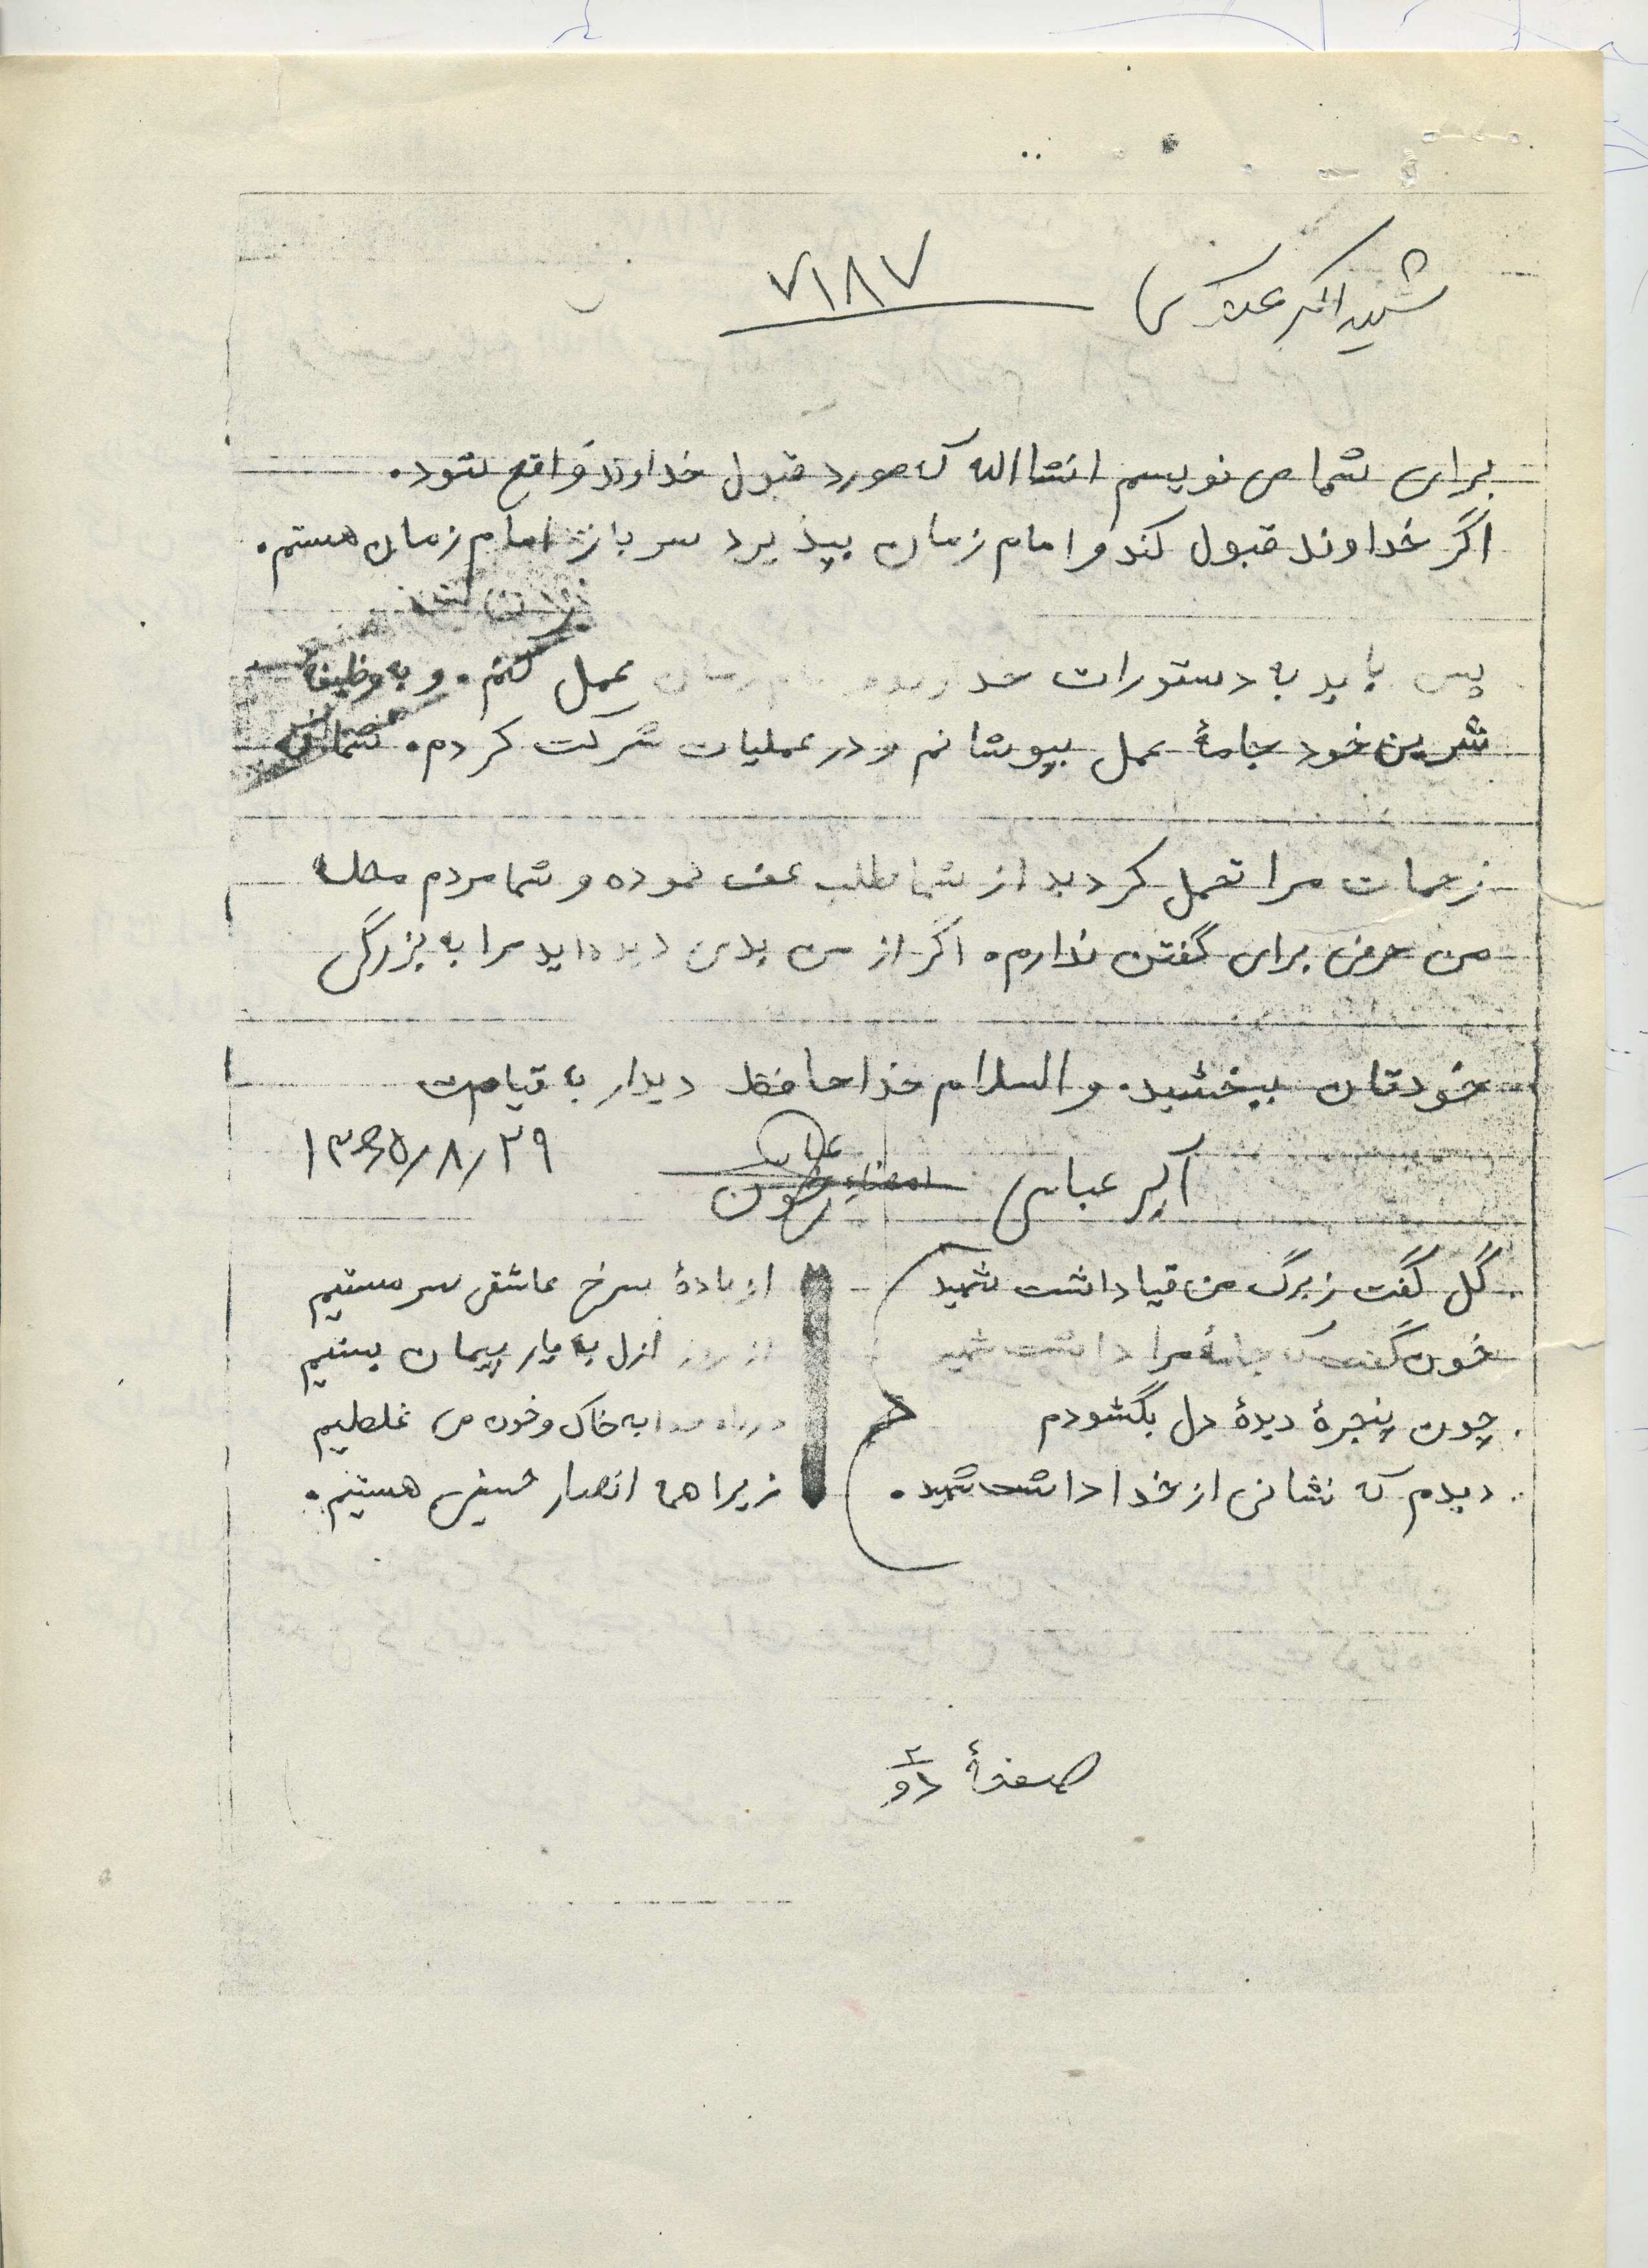 شهید اکبر عباسی ۷۱۸۷
برای شما می نویسم انشاالله که مورد قبول خداوند واقع شود.
اگر خداوند قبول کند و امام زمان بپذیرد سرباز امام زمان هستم.
پس باید به دستورات خداوند عمل کنم. و به وظیفه
شرعی خود جامهٔ عمل بپوشانم و در عملیات شرکت کردم. شما
زحمات مرا تحمل کردید از شما طلب عفو نموده و شما مردم محله
من حرفی برای گفتن ندارم. اگر از من بدی دیده اید مرا به بزرگی
خودتان ببخشید. والسلام خداحافظ دیدار با قیامت
اکبر عباسی امضاء ۱۳۶۵/۸/۲۹
گل گفت ز برگ من قبا داشت شهید از بادهٔ سرخ عاشقی سر مستیم
خون گفت که جامهٔ مرا داشت شهید از روز ازل به یار پیمان بستیم
چون پنجرهٔ دیدهٔ دل بگشودم در راه خدا به خاک و خون می غلطیم
دیدم که نشانی از خدا داشت شهید. زیرا همه انصار خمینی هستیم.
صفحهٔ دو ۲